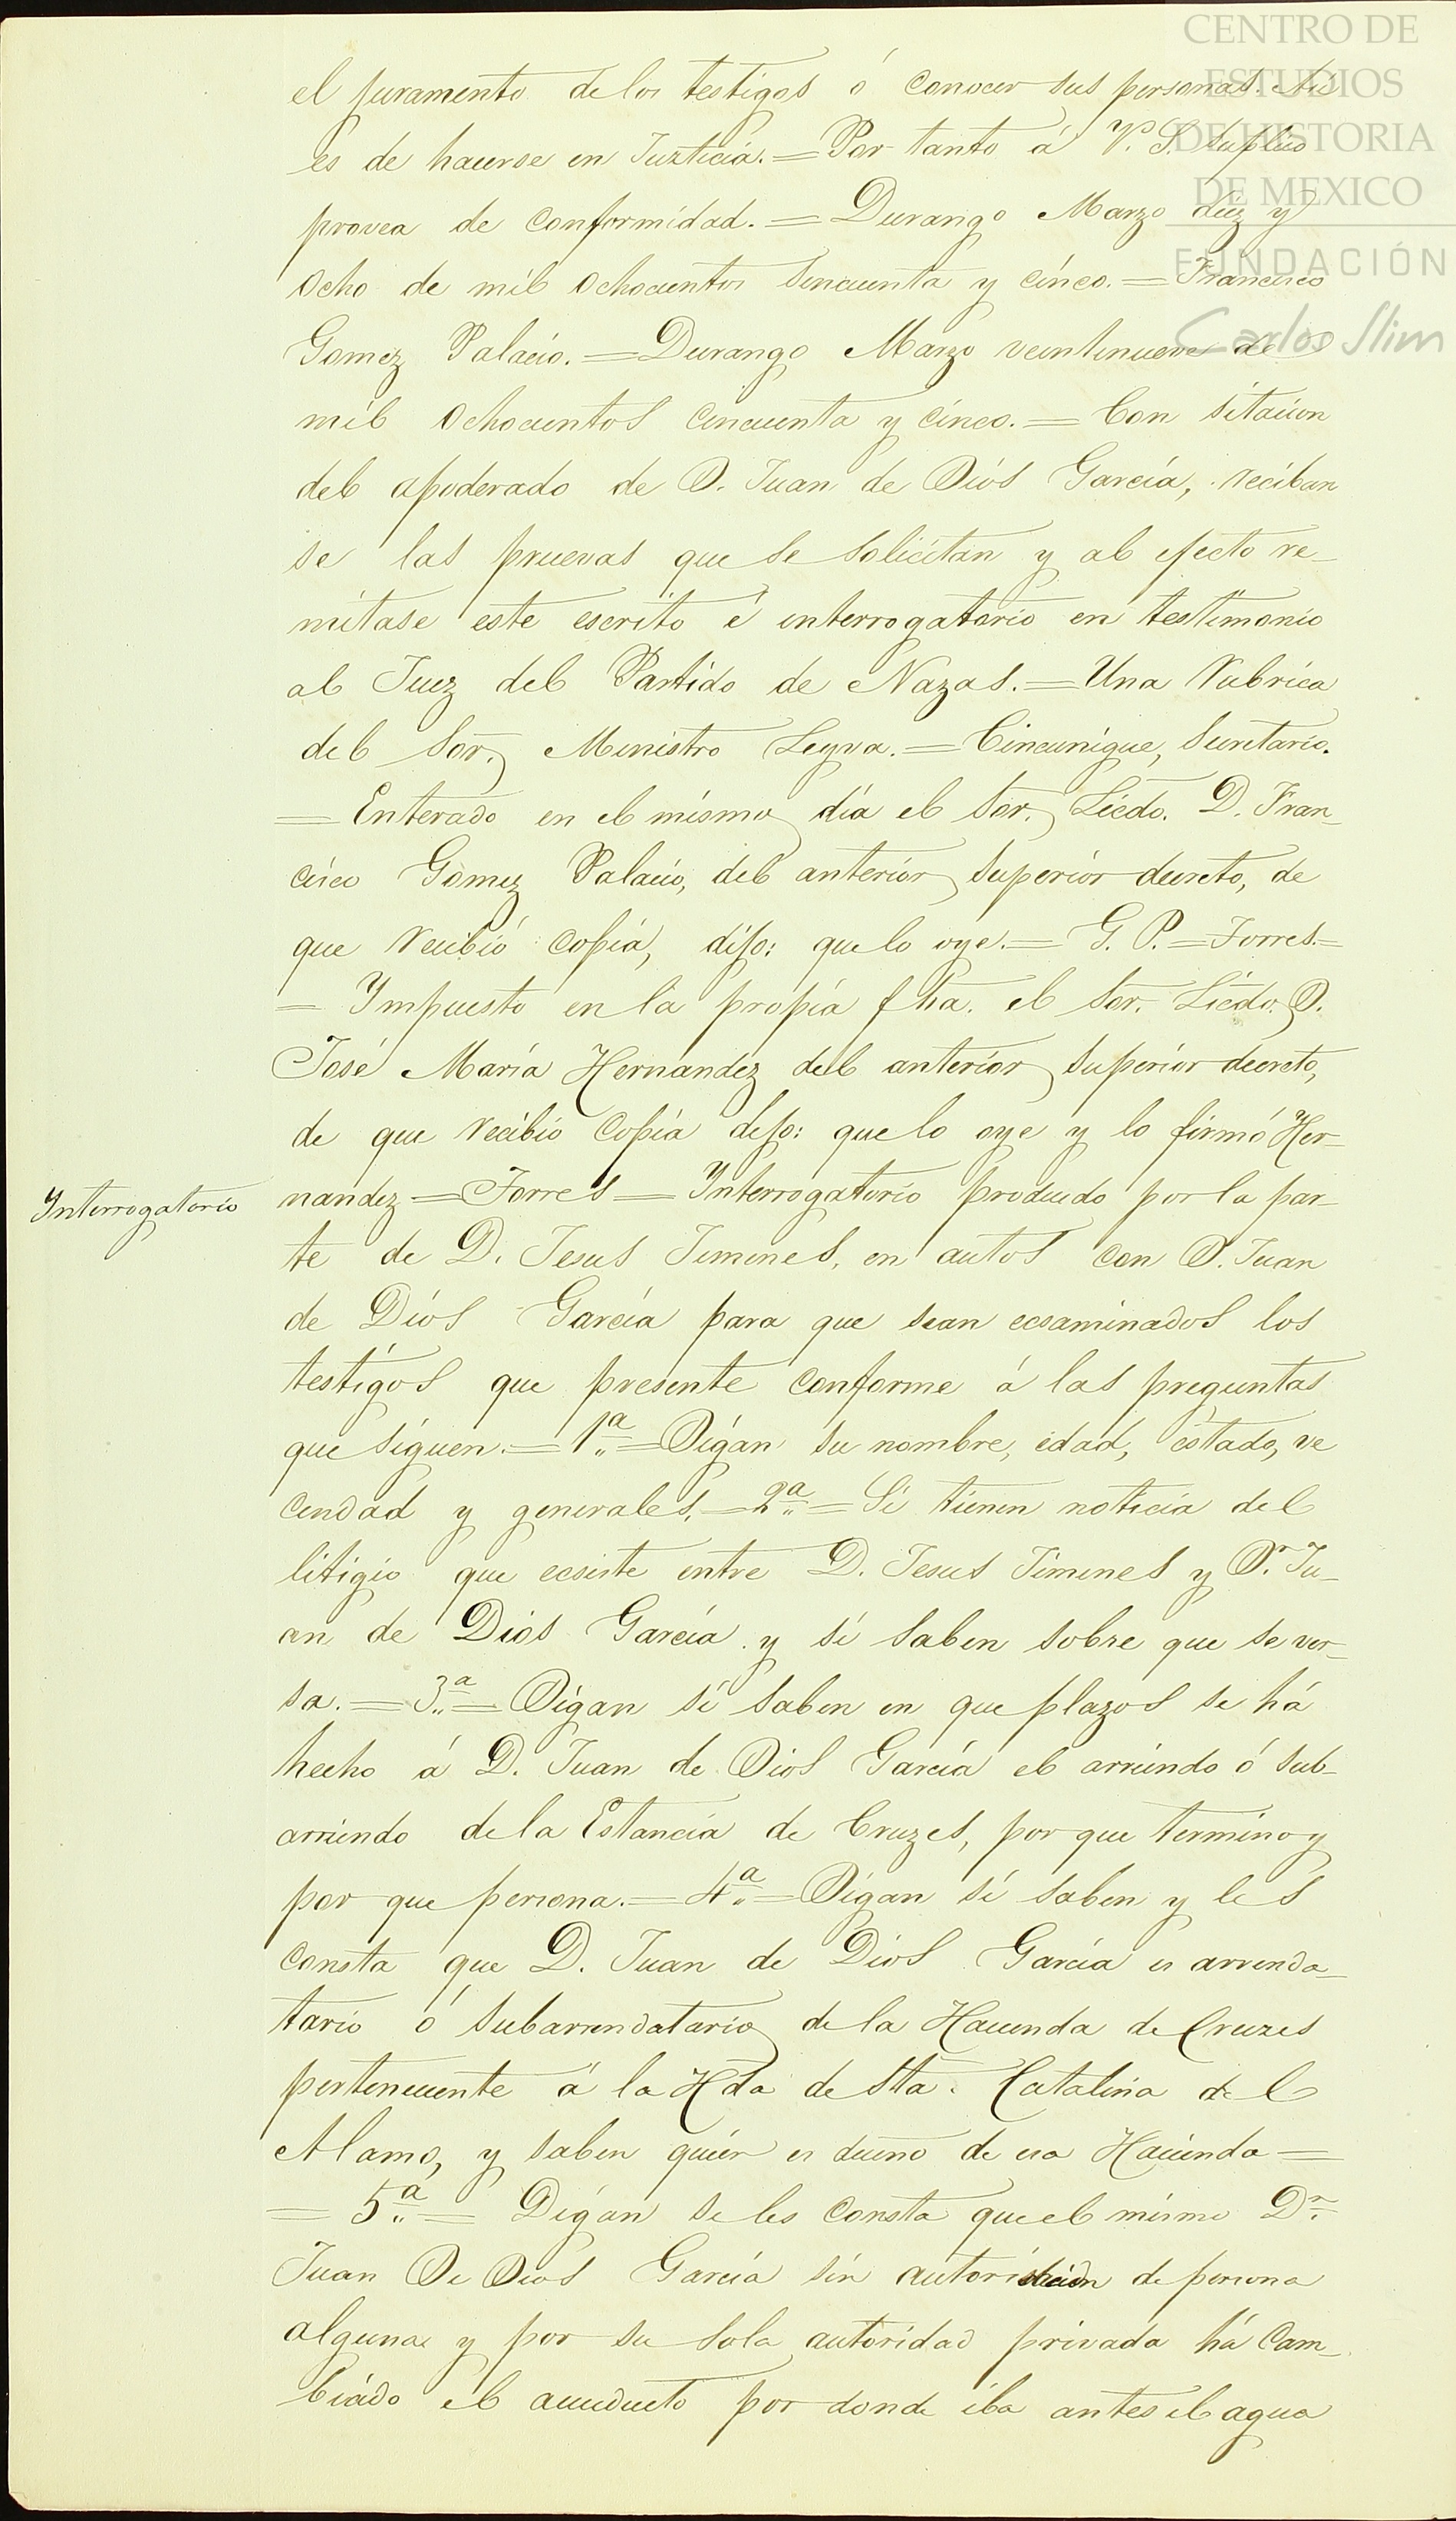 CENTRO DE
ESTUDIOS
DE HISTORIA
DE MEXICO
FUNDACIÓN
Carlos Slim
el juramento de los testigos ó conocer sus personas. Así
es de hacerse en Juzticia.=Por tanto á V. S. suplico
provea de conformidad.=Durango Marzo diez y
ocho de mil ochocientos sincuenta y cinco.=Francisco
Gomez Palacio.=Durango Marzo veintinueve de
mil ochocientos cincuenta y cinco.=Con sitacion
del apoderado de D. Juan de Dios García, reciban
se las pruevas que se solicitan y al efecto re-
mitase este escrito é interrogatorio en testimonio
al Juez del Partido de Nazas.=Una rubrica
del Sor. Ministro Leyva.=Cincunigue, Secretario.
=Enterado en el mismo día el Sor. Licdo. D. Fran-
cisco Gomez Palacio, del anterior superior decreto, de
que recibió copia, dijo: que lo oye.=G. P.=Torres.=
=Impuesto en la propia fha. el Sor. Licdo. D.
José María Hernandez del anterior superior decreto,
de que recibio copia dijo: que lo oye y lo firmó Her-
Interrogatorio
nandez=Torres=Interrogatorio producido por la par-
te de D. Jesus Jimenes, en autos con D. Juan
de Dios García para que sean ecsaminados los
testigos que presente conforme á las preguntas
que siguen.=1ª=Digan su nombre, edad, estado, ve
cindad y generales.=2ª=Si tienen noticia del
litigio que ecsiste entre D. Jesus Jimenes y Dn. Ju-
an de Dios García y si saben sobre que se ver-
sa.=3ª=Digan si saben en que plazos se há
hecho á D. Juan de Dios García el arriendo ó sub-
arriendo de la Estancia de Cruzes, por que termino y
por que persona.=4ª=Digan si saben y les
consta que D. Juan de Dios García es arrenda-
tario ó subarrendatario de la Hacienda de Cruzes
perteneciente á la Hda de Sta. Catalina del
Alamo, y saben quien es dueño de esa Hacienda=
=5ª=Digan si les consta que el mismo Dn.
Juan De Dios García sin autorisacion de persona
alguna y por su sola autoridad privada há cam-
biado el acueducto por donde iba antes el agua